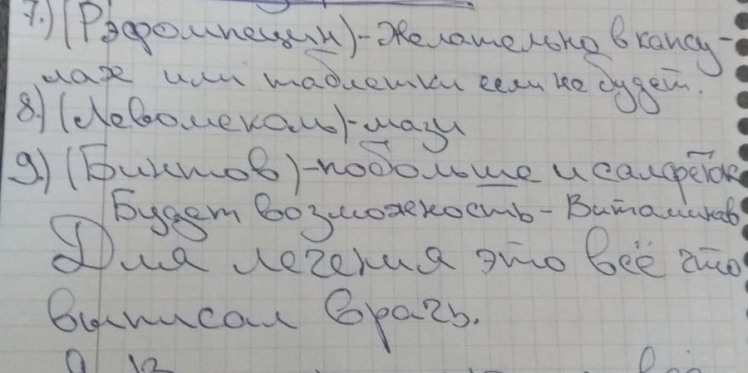 7.) (Рэфомпецин)-Желательно в капсу-
лах или таблетки если не будет.
8.) (Левомеколь)-мази
9.) (Бинтов)-побольше и салфеток
Будет возможность-Витаминов
Для лечения это всё что
выписал врачь.